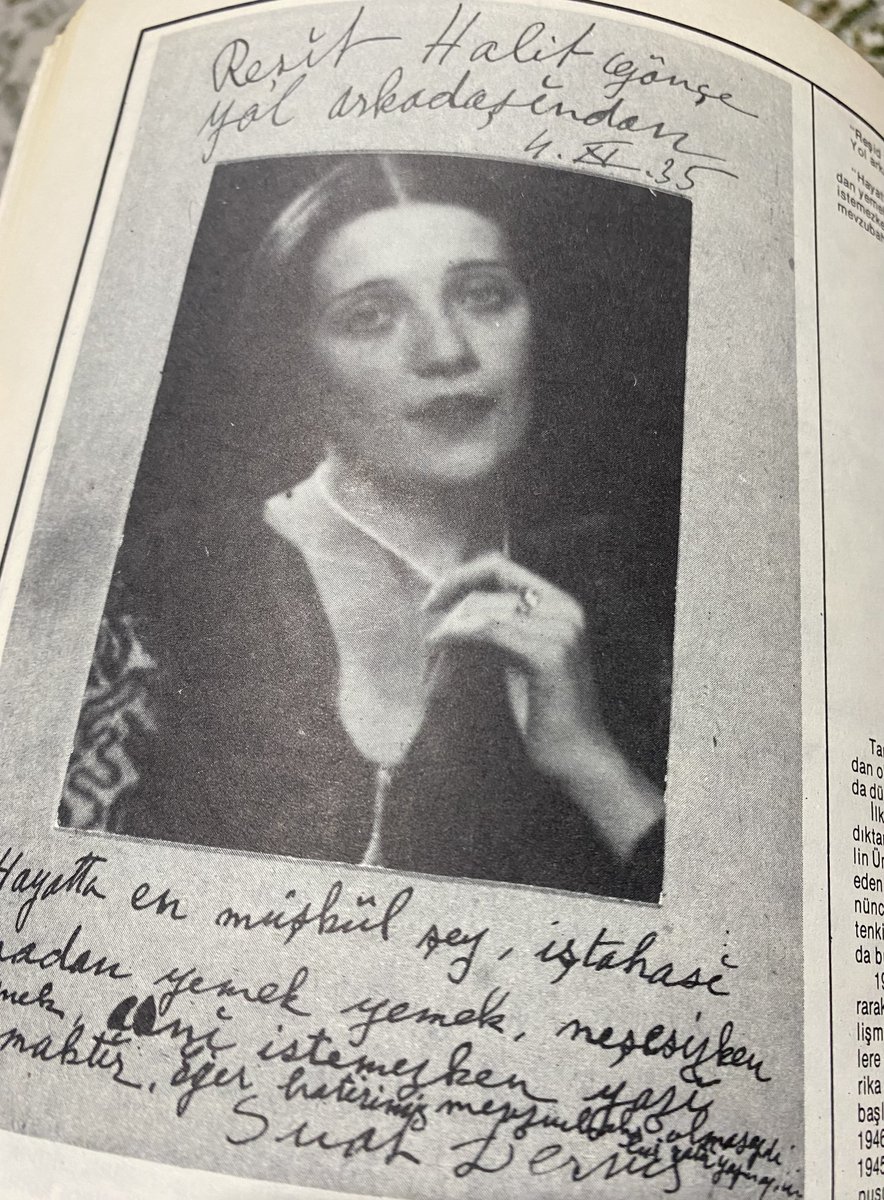 Reşit Halit Gönçe
yol arkadaşından
4. XI. 35
Hayatta en müşkül şey, iştahasi
madan yemek yemek, neşesizken
mek, canî istemezken yazi
maktır. Eğer hatirimiz mevzuubahs olmasaydi
bu yazıyı
Suat Derviş
"Reşid
Yol ark
"Hayat
dan yeme
istemezke
mevzubah
Ta
dan o
da dü
İlk
dıkta
lin Ün
eden
nünc
tenki
da bu
19
rarak
lişm
lere
rika
başl
1946
1945
nusu